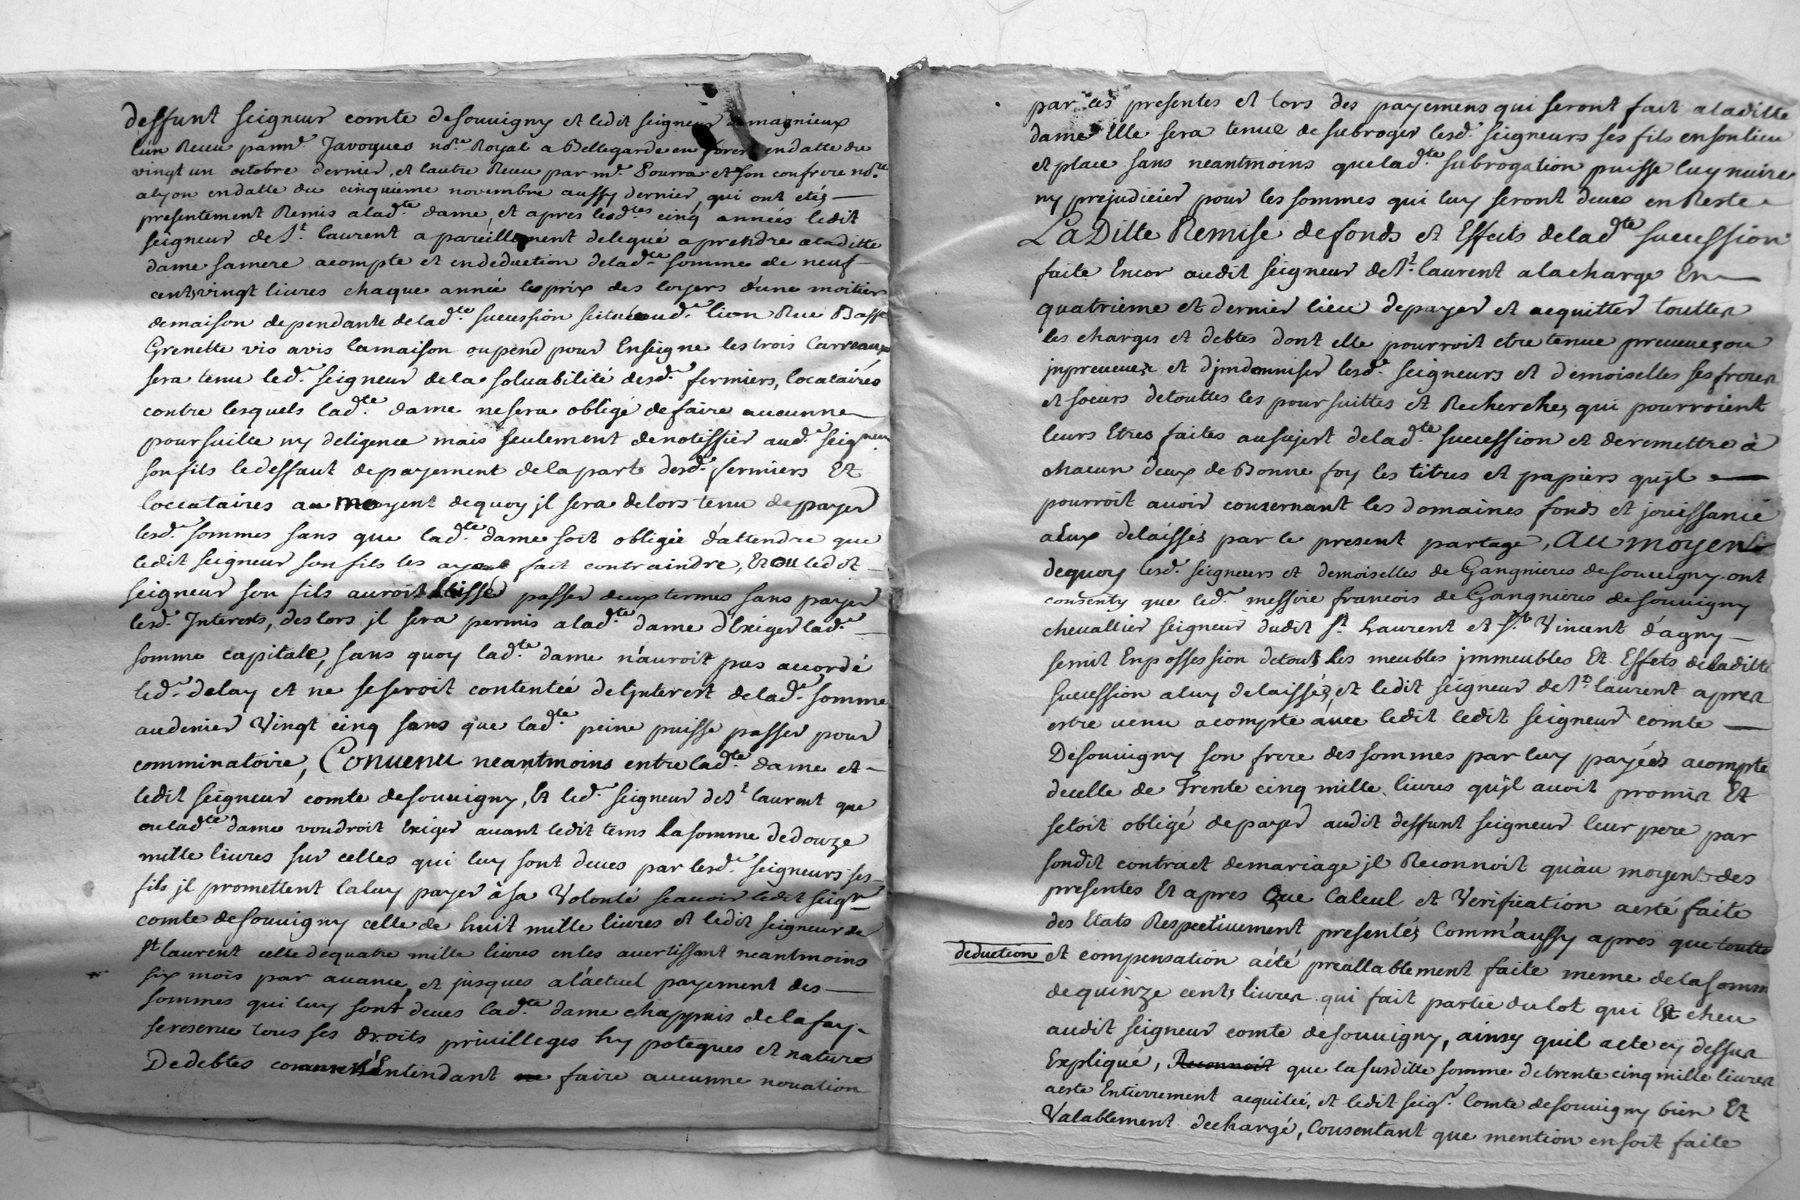 deffunt seigneur comte desouvigny et ledit seigneur magnieux
lun Receu par me. Javogues nore. Royal a Bellegarde en forest en datte du
vingt un octobre dernier, et lautre Receu par me. Bourrar et son confrere nore.
alyon endatte du cinquieme novembre aussy dernier, qui ont etés
presentement Remis aladte. dame, et apres lesdtes cinq années ledit
seigneur de St. laurent a pareillement delegué aprendre aladitte
dame samere acompte et endeduction deladte. somme de neuf
cents vingt livres chaque année lesprix des loyers d'une moitier
demaison dependante deladte. sucession scitue aud. lion Rue Basse
Grenette vis avis lamaison oupend pour Enseigne les trois Carreaux
sera tenu led. seigneur dela soluabilité desd. fermiers, locataires
contre lesquels ladte. dame nesera obligé defaire aucunne
poursuitte ny deligence mais seulement denotiffier aud. seigneur
sonfils ledeffaut depayement delapart desd. fermiers Et
loccataires au moyent dequoy jl sera delors tenu depayer
lesd. sommes sans que ladte. dame soit obligée d'attendre que
ledit seigneur son fils les ayent fait contraindre, Et ou ledit
seigneur son fils auroit laissé passer deux termes sans payer
lesd. Interests, des lors jl sera permis aladte. dame d'Exiger lad.
somme capitale, sans quoy ladte. dame n'auroit pas accordé
led. delay et ne seseroit contentée deljnterest delad. somme
audenier Vingt cinq sans que ladte. peine puisse passer pour
comminatoire, Convenu neantmoins entre ladte. dame et
ledit seigneur comte desouvigny, Et led. seigneur de St. laurent que
ou ladte. dame voudroit Exiger avant ledit tems la somme dedouze
mille livres sur celles qui luy sont deues par lesd. seigneurs ses
fils jl promettent laluy payer àsa Volonté scavoir ledit seigr.
comte desouvigny celle de huit mille livres et ledit seigneur de
St laurent celle dequatre mille livres enles avertissant neantmoins
six mois par avance, et jusques a l'actuel payement des
sommes qui luy sont deues ladte. dame chappuis de lafay
sereserve tous ses droits privilleges hy poteques et nature
Dedebtes Entendant faire aucunne novation
par ces presentes et lors des payemens qui seront fait aladitte
dame Elle sera tenue desubroger lesd. seigneurs ses fils en son lieu
et place sans neantmoins que ladte. subrogation puisse luy nuire
ny prejudicier pour les sommes qui luy seront deues en Reste
La Ditte Remise de fonds et Effets deladte sucession
faite Encor audit seigneur de St. laurent alacharge En
quatrieme et dernier lieu depayer et acquitter touttes
les charges et debtes dont elle pourroit etre tenue preveues ou
jnpreveues et d'jndamniser lesd. seigneurs et demoiselles ses freres
et soeurs detouttes les poursuittes et Recherches qui pourroient
leurs Etres faites ausujest deladte sucession et deremettre à
chacun d'eux de Bonne foy les titres et papiers qu'jl
pourroit avoir consernant les domaines fonds et jouissance
aeux delaissés par le present partage, Au moyen
dequoy lesd. seigneurs et demoiselles de Gangnieres desouvigny ont
consenty que led. messire francois de Gangnieres desouvigny
chevallier seigneur dudit St. Laurent et St. Vincent d'agny
semit Enpossession detous les meubles jmmeubles Et Effets deladitte
sucession aluy delaissés, et ledit seigneur de St. laurent apres
estre venu acompte avec ledit ledit seigneur comte
Desouvigny son frere dessommes par luy payées acompte
decelle de Trente cinq mille livres qu'jl avoit promis Et
setoit obligé depayer audit deffunt seigneur leur pere par
sondit contract demariage jl Reconnoit qu'au moyent des
presentes Et apres Que Calcul et Verification aesté faite
des Etats Respectivement presentés Comm'aussy apres que toutte
deduction et compensation aété preallablement faite meme delasomme
dequinze cents livres qui fait partie du lot qui Est cheu
audit seigneur comte desouvigny, ainsy quil aeté cy dessus
Expliqué, Reconnoit que lasusditte somme detrente cinq mille livres
aesté Entierrement acquitée, et ledit seigr. Comte desouvigny bien Et
Valablement dechargé, Consentant que mention ensoit faite